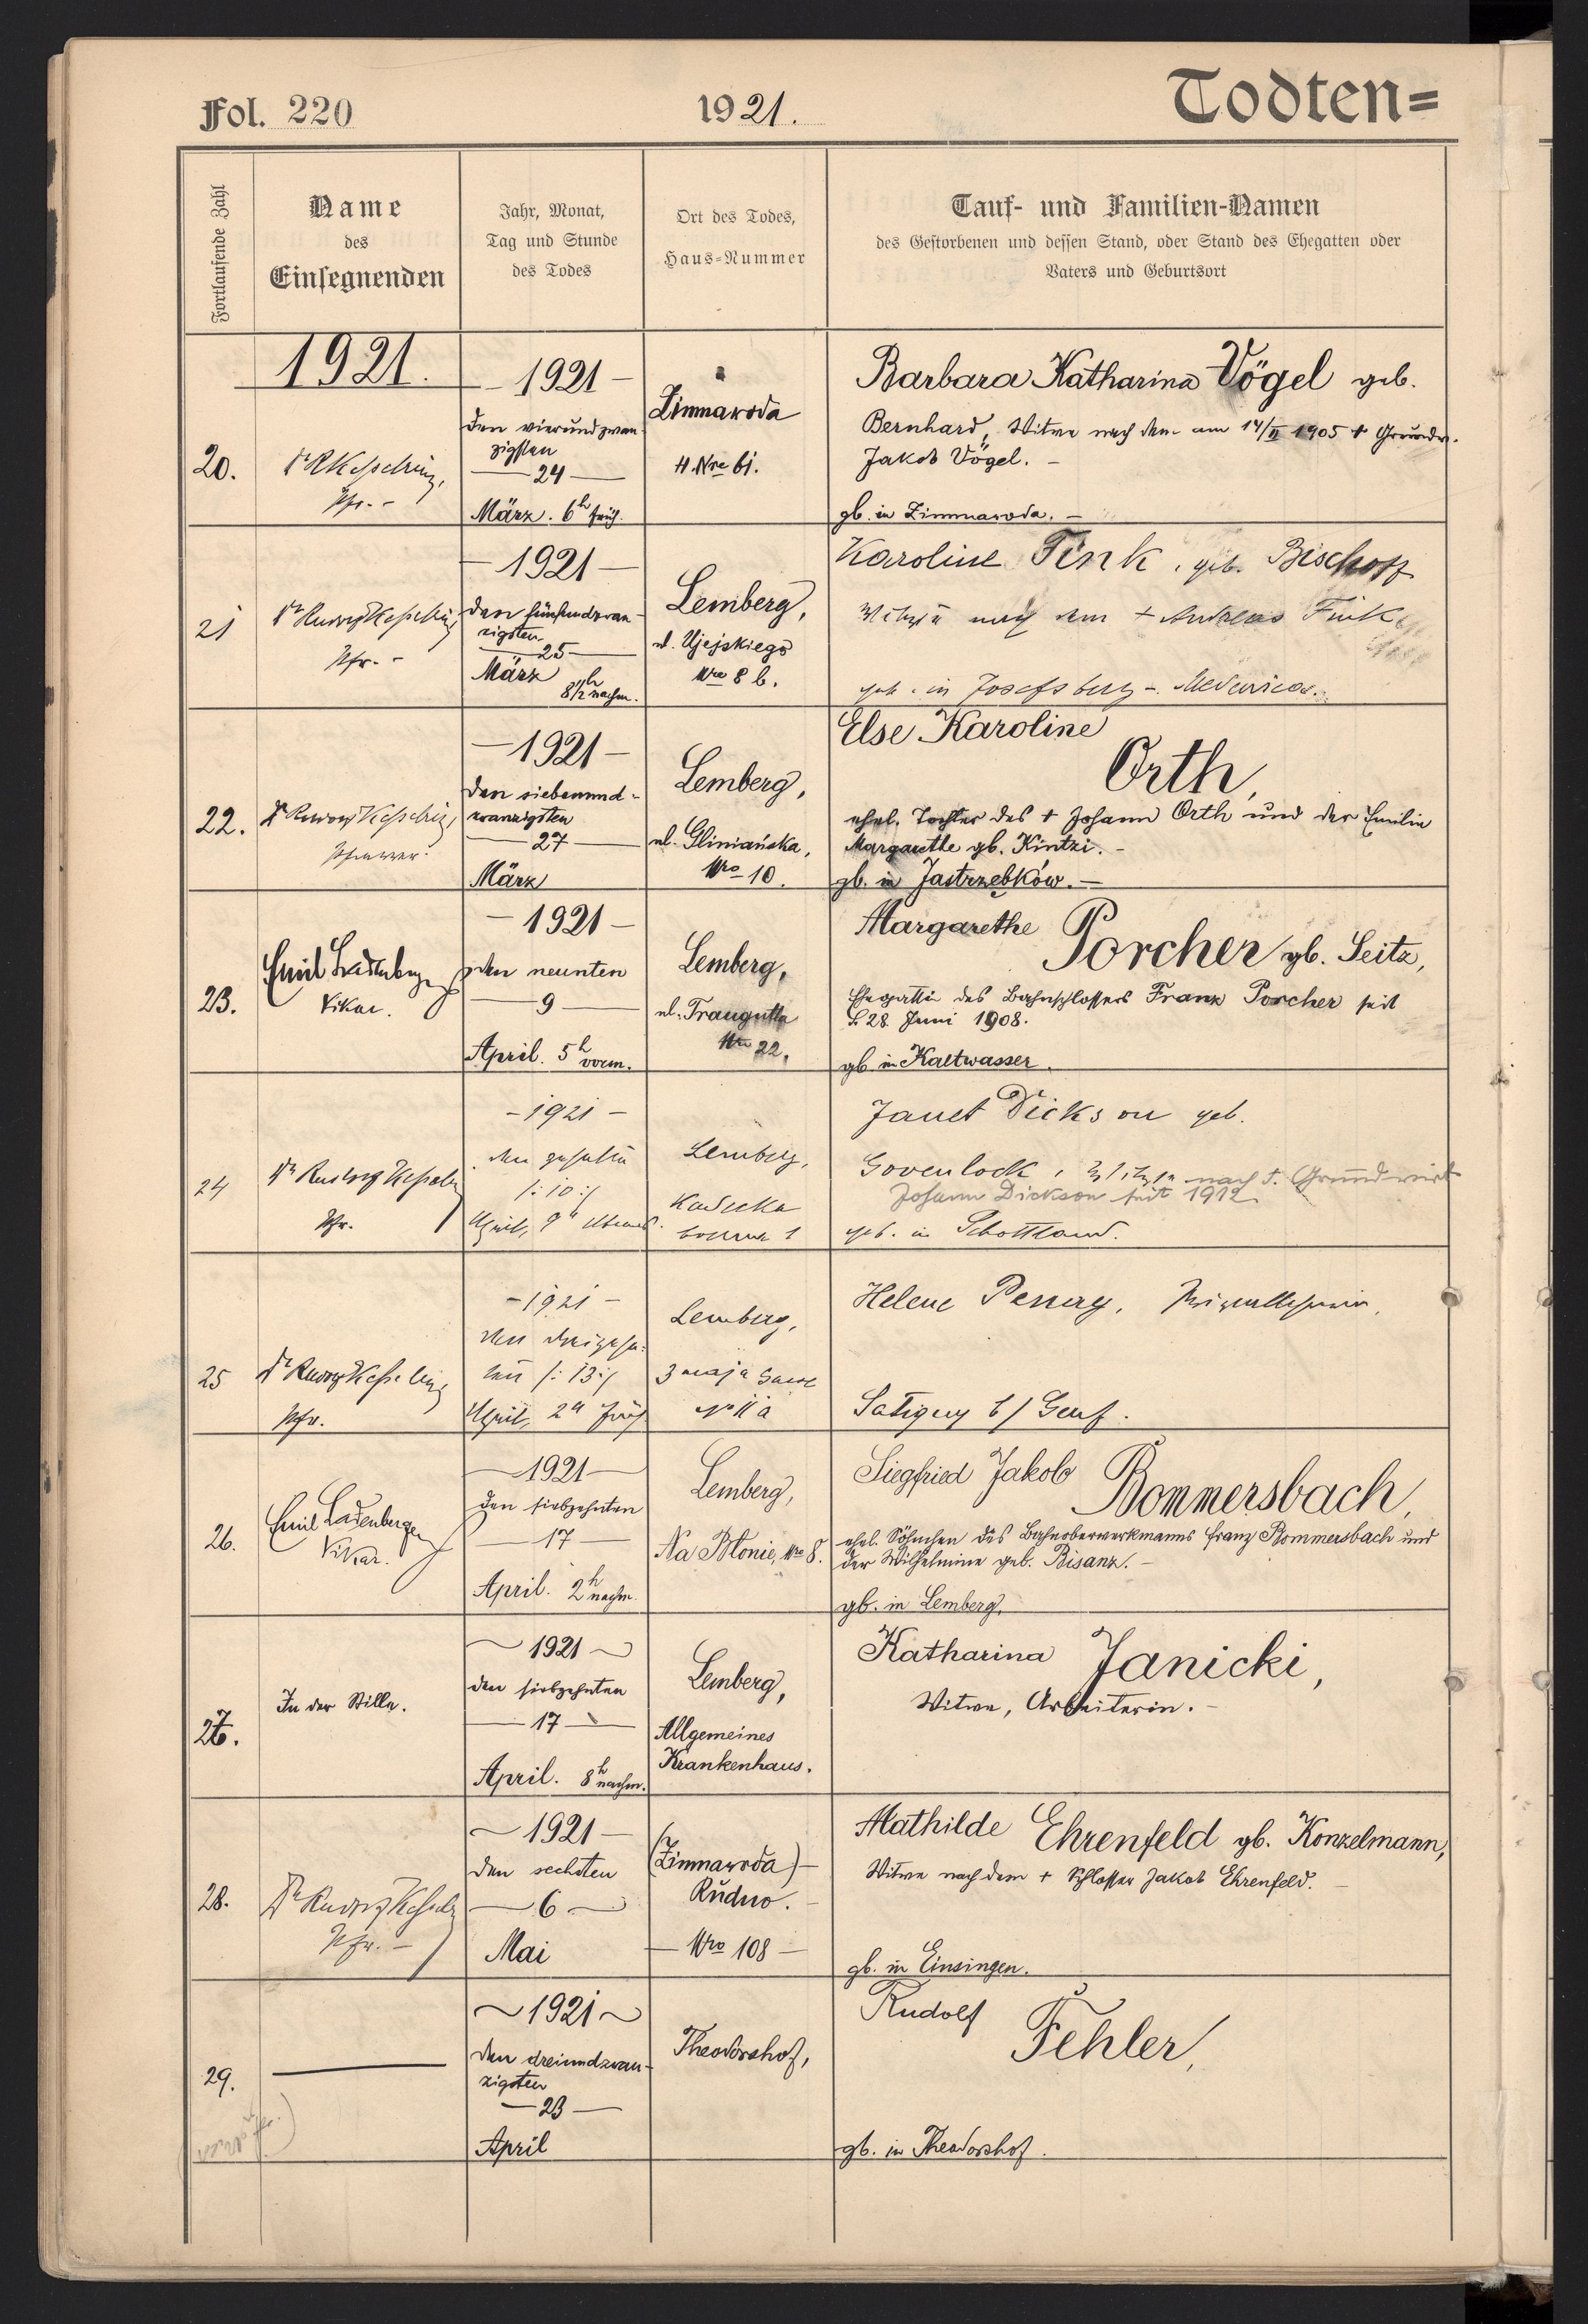 Fol. 220
1921.
Todten=
Fortlaufende Zahl
Name
des
Einsegnenden
Jahr, Monat,
Tag und Stunde
des Todes
Ort des Todes,
Haus-Nummer
Tauf- und Familien-Namen
des Gestorbenen und dessen Stand, oder Stand des Ehegatten oder
Vaters und Geburtsort
1921.
20.
Dr Kesselring,
Pfr. -
- 1921 -
den vierundzwan-
zigsten
- 24 -
März. 6h früh.
Zimnawoda
H. Nro 61.
Barbara Katharina Vögel geb.
Bernhard, Witwe nach dem am 14/II 1905 + Grundw.
Jakob Vögel. -
gb. in Zimnawoda. -
21
Dr Rudolf Kesselring
Pfr. -
- 1921 -
den fünfundzwan-
zigsten
- 25 -
März
8 1/2 h nachm.
Lemberg,
ul. Ujejskiego
Nro 8 b.
Karoline Fink, geb. Bischoff
Witwe nach dem + Andreas Fink
geb. in Josefsberg -
22.
Dr Rudolf Kesselring,
Pfarrer.
- 1921 -
den siebenund-
zwanzigsten
- 27 -
März
Lemberg,
ul. Gliniańska,
Nro 10.
Else Karoline
Orth,
ehel. Tochter des + Johann Orth und der Emilie
Margarethe gb. Kintzi. -
gb. in Jastrzębków. -
23.
Emil Ladenberger
Vikar.
- 1921 -
den neunten
- 9 -
April. 5h vorm.
Lemberg,
ul. Traugutta
Nro 22.
Margarethe Porcher gb. Seitz,
Ehegattin des Bahnschlossers Franz Porcher seit
d. 28. Juni 1908.
gb. in Kaltwasser.
24
Dr Rudolf Kesselring
Pfr.
- 1921 -
den zehnten
/: 10 :/
April, 9h Abends.
Lemberg,
Kadecka
1
Janet Dickson geb.
Govenlock, Witwe nach d. Grundwirt
Johann Dickson seit 1912.
geb. in Schottland.
25
Dr Rudolf Kesselring
Pfr.
- 1921 -
den dreizehn-
ten /: 13 :/
April, 2h früh
Lemberg,
3 maja Gasse
No 11a
Helene Perrey,
Satigny b/ Genf.
26.
Emil Ladenberger
Vikar.
- 1921 -
den siebzehnten
- 17 -
April. 2h nachm.
Lemberg,
Na Błonie, Nro 8.
Siegfried Jakob Bommersbach,
ehel. Söhnchen des Bahnoberwerkmanns Franz Bommersbach und
der Wilhelmine geb. Bisanz. -
gb. in Lemberg.
27.
In der Stille.
~ 1921 ~
den siebzehnten
- 17 -
April. 8h nachm.
Lemberg,
Allgemeines
Krankenhaus.
Katharina Janicki,
Witwe, Arbeiterin. -
28.
Dr Rudolf Kesselring
Pfr. -
~ 1921 -
den sechsten
- 6 -
Mai
(Zimnawoda) -
Rudno. -
- Nro 108 -
Mathilde Ehrenfeld gb. Konzelmann,
Witwe nach dem + Schlosser Jakob Ehrenfeld. -
gb. in Einsingen.
29.
~ 1921 ~
den dreiundzwan-
zigsten
- 23 -
April
Theodorshof,
Rudolf Fehler,
gb. in Theodorshof.